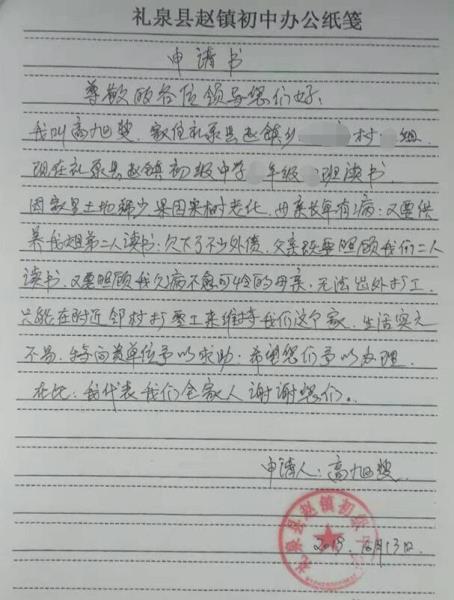 礼泉县赵镇初中办公纸笺
申请书
尊敬的各位领导您们好:
我叫高旭 家住礼泉县赵镇乡 村 组
现在礼泉县赵镇初级中学 年级 班读书
因家里土地稀少果园果树老化,母亲长年有病:又要供
养我姐弟二人读书:欠下了不少外债,父亲既要照顾我们二人
读书,又要照顾我久病不愈可怜的母亲,无法出外打工
只能在附近邻村打零工来维持我们这个家,生活实在
不易,特向贵单位予以求助:希望您们予以办理
在此:我代表我们全家人谢谢您们。
申请人:高旭
礼泉县赵镇初级中
月13日